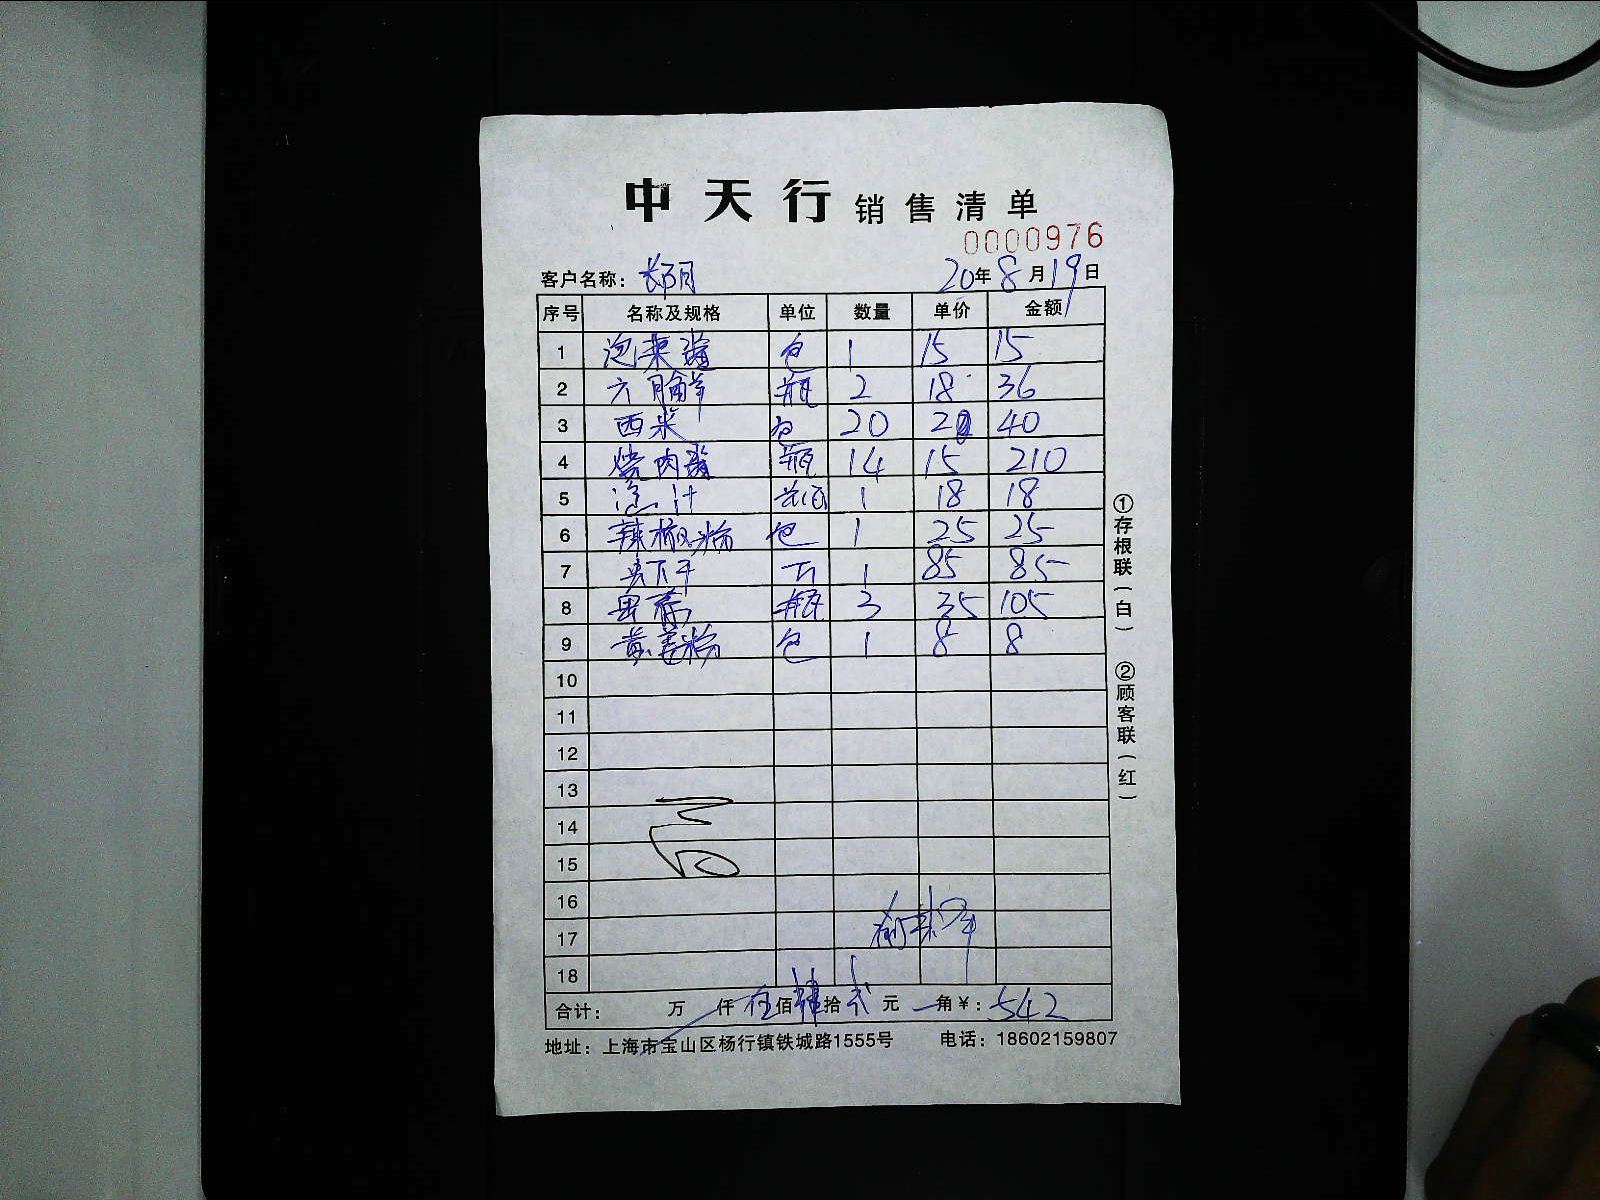 中天行 销售清单
0000976
客户名称: 20年8月19日
序号 名称及规格 单位 数量 单价 金额
1 泡菜酱 包 1 15 15
2 六月鲜 瓶 2 18 36
3 西米 包 20 2 40
4 烧肉酱 瓶 14 15 210
5 汁 1 18 18
6 辣椒粉 包 1 25 25
7 1 85 85
8 瓶 3 35 105
9 黄姜粉 包 1 8 8
10
11
12
13
14
15
16
17
18
合计: 万 仟 伍佰肆拾贰元 角 ¥: 542
地址: 上海市宝山区杨行镇铁城路1555号 电话: 18602159807
①存根联(白) ②顾客联(红)